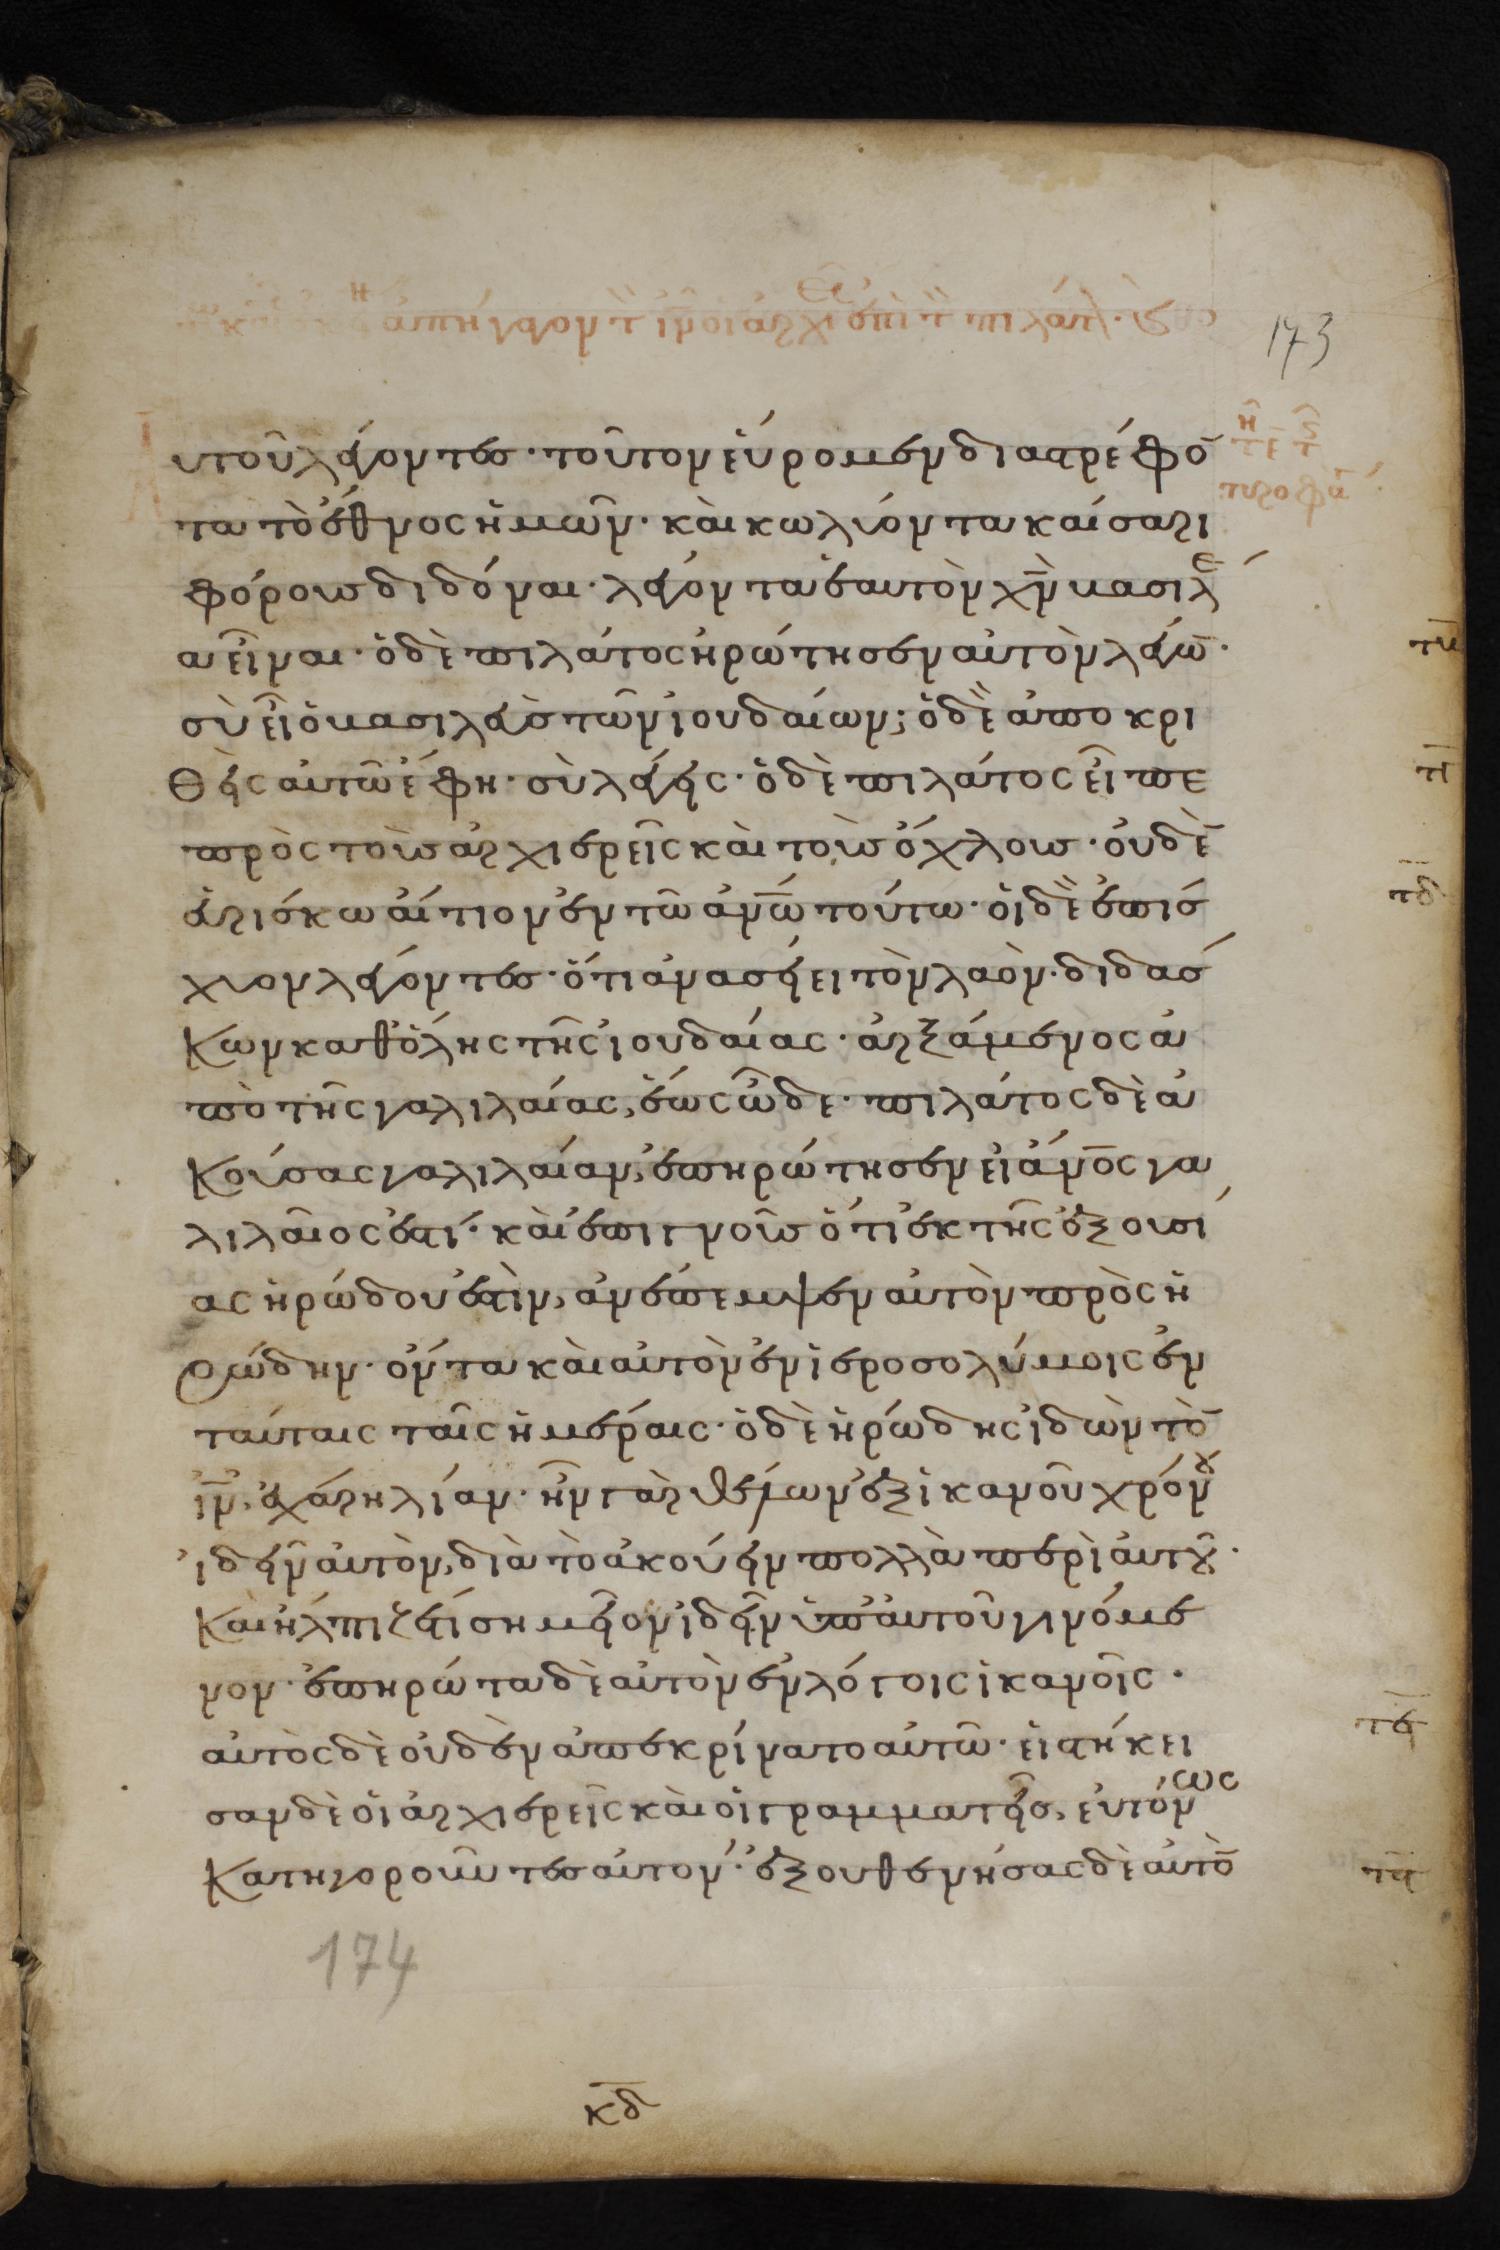 ἀπήγαγον τ ιν οἱ ἀρχιερ ἐπὶ τ πιλάτ
173
υτοῦ λέγοντες · τοῦτον εὕρομεν διαστρέφο
τα τὸ ἔθνος ἡμῶν · καὶ κωλύοντα καίσαρι
φόρους διδόναι · λέγοντα ἑαυτὸν χν βασιλέ
α εἶναι · ὁ δὲ πιλάτος ἠρώτησεν αὐτὸν λέγω ·
σὺ εἶ ὁ βασιλεὺς τῶν ἰουδαίων; ὁ δὲ ἀποκρι
θεὶς αὐτῶ ἔφη · σὺ λέγεις · ὁ δὲ πιλάτος εἶπε
πρὸς τοὺς ἀρχιερεῖς καὶ τοὺς ὄχλους · οὐδὲ
εὑρίσκω αἴτιον ἐν τῶ ἀνω τούτω · οἱ δὲ ἐπίσ
χυον λέγοντες · ὅτι ἀνασείει τὸν λαὸν · διδάσ
κων καθόλης τῆς ἰουδαίας · ἀρξάμενος ἀ
πὸ τῆς γαλιλαίας, ἕως ὧδε · πιλάτος δὲ ἀ
κούσας γαλιλαίαν, ἐπηρώτησεν εἰ ἄνος γα
λιλαῖος ἐστί · καὶ ἐπιγνοὺς ὅτι ἐκ τῆς ἐξουσί
ας ἡρώδου ἐστὶν, ἀνέπεμψεν αὐτὸν πρὸς ἡ
ρώδην · ὄντα καὶ αὐτὸν ἐν ἱεροσολύμοις ἐν
ταύταις ταῖς ἡμέραις · ὁ δὲ ἡρώδης ἰδὼν τὸ
ιν, ἐχάρη λίαν · ἦν γὰρ θέλων ἐξ ἱκανοῦ χρόνου
ἰδεῖν αὐτὸν, διὰ τὸ ἀκούειν πολλὰ περὶ αὐτοῦ ·
καὶ ἤλπιζέ τί σημεῖον ἰδεῖν ὑπ' αὐτοῦ γινόμε
νον · ἐπηρώτα δὲ αὐτὸν ἐν λόγοις ἱκανοῖς ·
αὐτὸς δὲ οὐδὲν ἀπεκρίνατο αὐτῶ · εἱστήκει
σαν δὲ οἱ ἀρχιερεῖς καὶ οἱ γραμματεῖς, εὐτόνως
κατηγοροῦντες αὐτοῦ · ἐξουθενήσας δὲ αὐτὸ
174
κδ